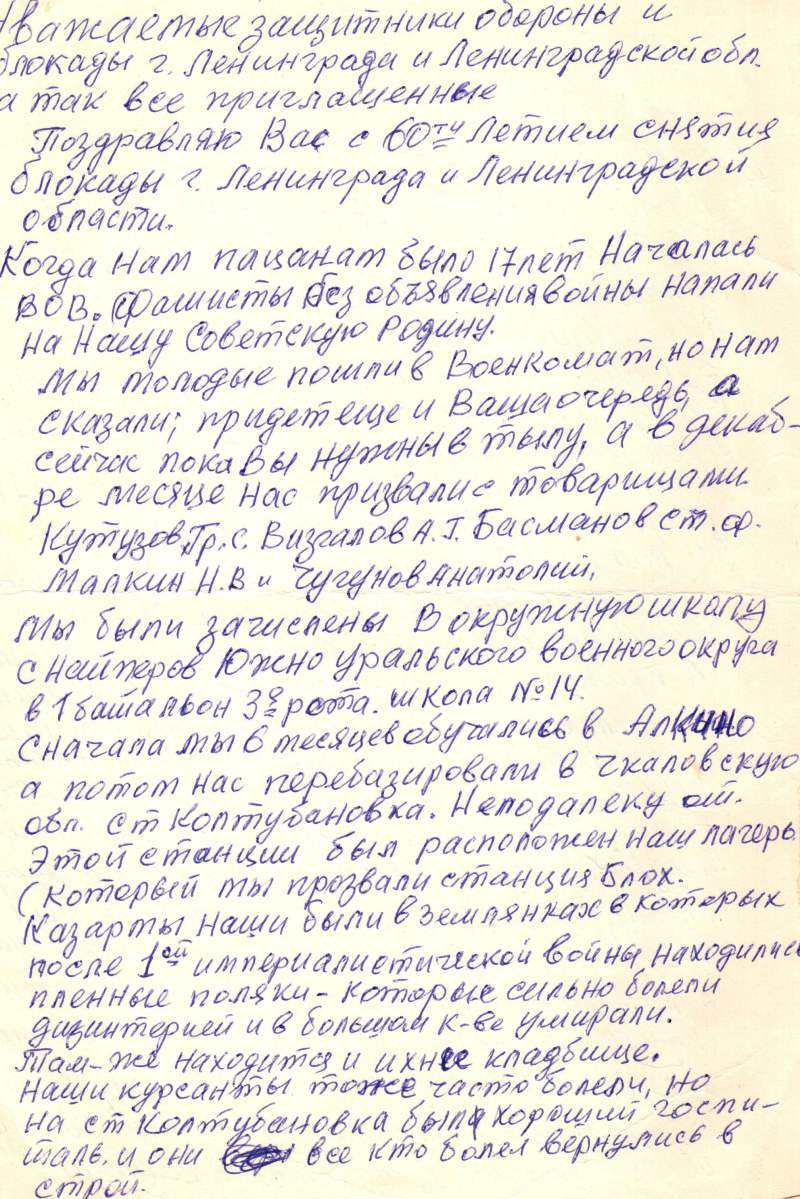 Уважаемые защитники обороны и
блокады г. Ленинграда и Ленинградской обл.
а так все приглашенные
Поздравляю Вас с 60ти Летием снятия
блокады г. Ленинграда и Ленинградской
области.
Когда нам пацанам было 17 лет Началась
ВОВ. Фашисты без объявления войны напали
на Нашу Советскую Родину.
Мы молодые пошли в Военкомат, но нам
сказали; придет еще и Ваша очередь, а
сейчас пока Вы нужны в тылу, а в декаб-
ре месяце нас призвали с товарищами.
Кутузов Гр.с. Визгалов А.Г. Басманов ст.ф.
Малкин Н.В и Чугунов Анатолий.
Мы были зачислены В окружную школу
снайперов Южно Уральского военного округа
в 1 батальон 3я рота. школа №14.
Сначала мы 6 месяцев обучались в Алкино
а потом нас перебазировали в Чкаловскую
обл. ст Колтубановка. Неподалеку от
Этой станции был расположен наш лагерь.
(Который мы прозвали станция Блох.
Казармы наши были в землянках в которых
после 1ой империалистической войны находились
пленные поляки - которые сильно болели
дизинтерией и в большом к-ве умирали.
Там-же находится и ихнее кладбище.
Наши курсанты тоже часто болели, но
на ст Колтубановка был хороший госпи-
таль. и они все кто болел вернулись в
строй.